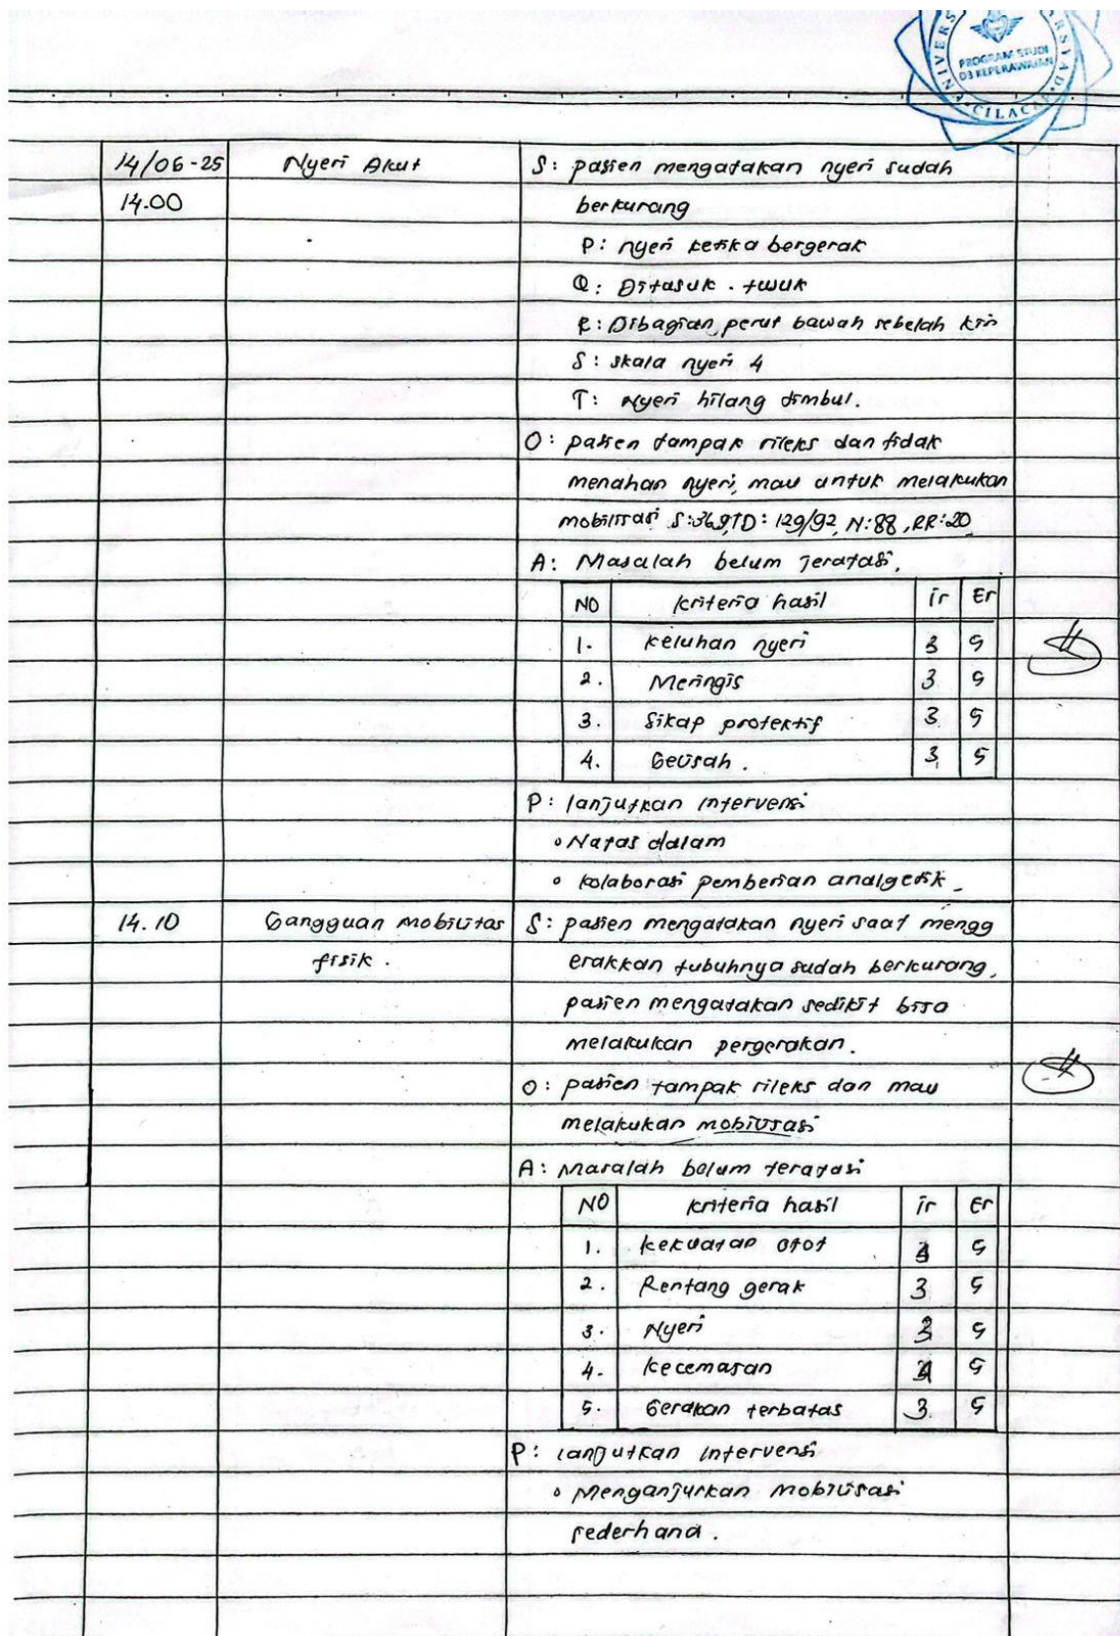 PROGRAM STUDI
D3 KEPERAWATAN
CILACAP
14/06-25 Nyeri Akut S: pasien mengatakan nyeri sudah
14.00 berkurang
P: nyeri ketika bergerak
Q: Ditusuk-tusuk
R: Dibagian perut bawah sebelah kiri
S: skala nyeri 4
T: Nyeri hilang timbul.
O: pasien tampak rileks dan tidak
menahan nyeri, mau untuk melakukan
mobilisasi S:36,9 TD: 129/92, N:88, RR:20
A: Masalah belum teratasi.
NO kriteria hasil ir Er
1. keluhan nyeri 3 5
2. Meringis 3 5
3. Sikap protektif 3 5
4. Gelisah. 3 5
P: lanjutkan intervensi
• Nafas dalam
• kolaborasi pemberian analgetik
14.10 Gangguan mobilitas S: pasien mengatakan nyeri saat mengg
fisik. erakkan tubuhnya sudah berkurang,
pasien mengatakan sedikit bisa
melakukan pergerakan.
O: pasien tampak rileks dan mau
melakukan mobilisasi
A: Masalah belum teratasi
NO kriteria hasil ir Er
1. kekuatan otot 5
2. Rentang gerak 3 5
3. Nyeri 3 5
4. kecemasan 5
5. Gerakan terbatas 3 5
P: lanjutkan intervensi
• Menganjurkan mobilisasi
sederhana.